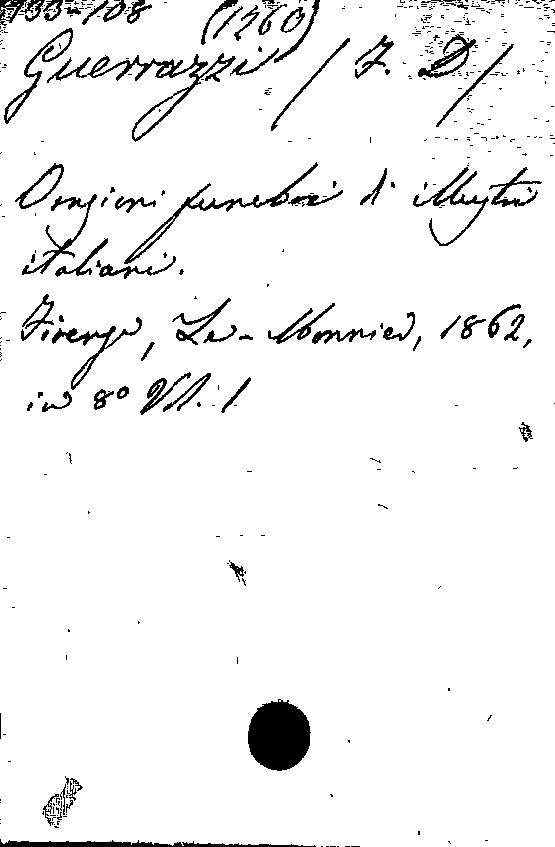 133-108 (1260)
Guerrazzi / F. D /
Orazioni funebri di illustri
italiani.
Firenze, Le-Monnier, 1862,
in 8° Vol. 1